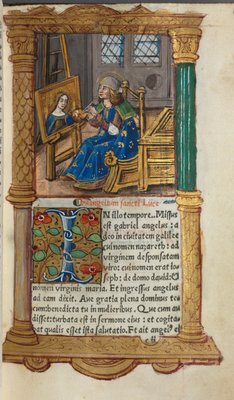 Euangelium sancti Luce
IN illo tempore. Missus
est gabriel angelus: a
deo in ciuitatem galilee
cui nomen nazareth: ad
virginem desponsatam
viro: cui nomen erat ioseph
: de domo dauid: et
nomen virginis maria. Et ingressus angelus
ad eam dixit. Aue gratia plena dominus te
cum: benedicta tu in mulieribus. Que cum au
disset: turbata est in sermone eius: et cogita
bat qualis esset ista salutatio. Et ait angel⁹ ei